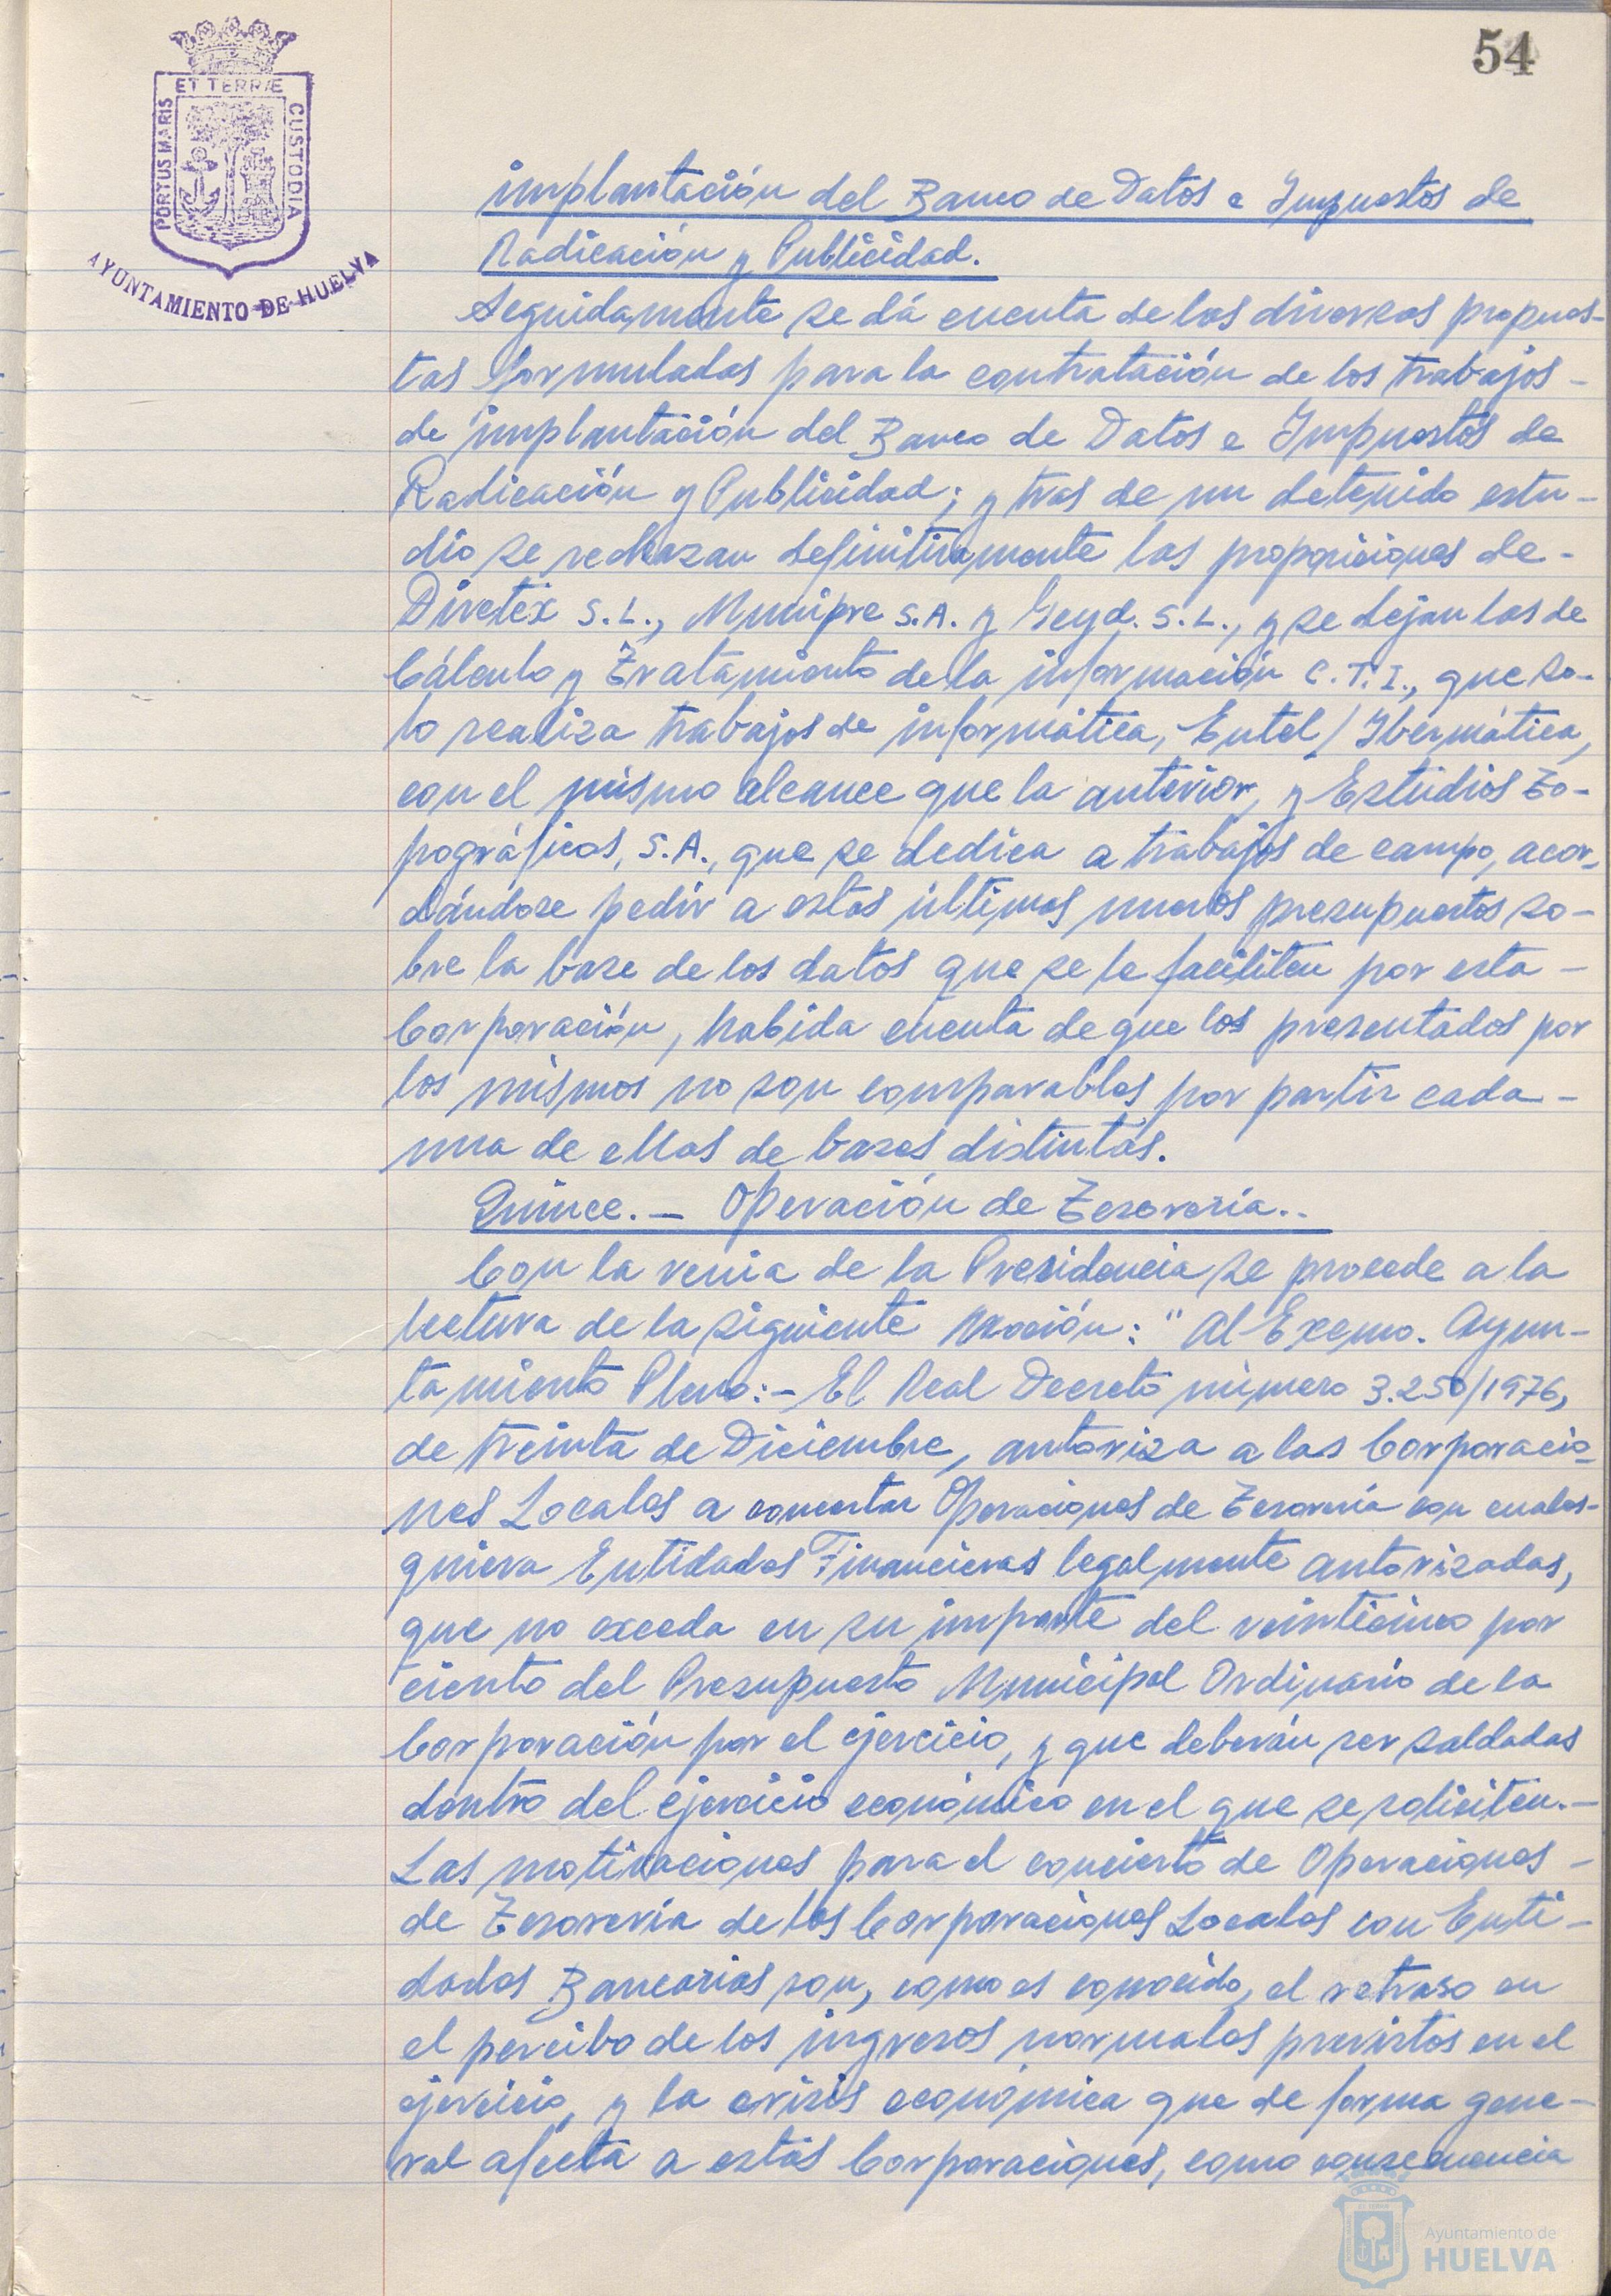 54
ET TERRÆ
PORTUS MARIS
CUSTODIA
AYUNTAMIENTO DE HUELVA
implantación del Banco de Datos e Impuestos de
Radicación y Publicidad.
Seguidamente se dá cuenta de las diversas propues-
tas formuladas para la contratación de los trabajos-
de implantación del Banco de Datos e Impuestos de
Radicación y Publicidad; y tras de un detenido estu-
dio se rechazan definitivamente las proposiciones de-
Divetex S.L., Munipre S.A. y Geyd. S.L., y se dejan las de
Cálculo y Tratamiento de la información C.T.I., que so-
lo realiza trabajos de informática, Entel/Ibermática,
con el mismo alcance que la anterior, y Estudios To-
pográficos, S.A., que se dedica a trabajos de campo, acor-
dándose pedir a estas últimas nuevos presupuestos so-
bre la base de los datos que se le faciliten por esta-
Corporación, habida cuenta de que los presentados por
los mismos no son comparables por partir cada-
una de ellas de bases distintas.
Quince.- Operación de Tesorería.-
Con la venia de la Presidencia se procede a la
lectura de la siguiente Moción: " Al Excmo. Ayun-
tamiento Pleno:- El Real Decreto número 3.250/1976,
de treinta de Diciembre, autoriza a las Corporacio-
nes Locales a concertar Operaciones de Tesorería con cuales-
quiera Entidades Financieras legalmente autorizadas,
que no exceda en su importe del veinticinco por
ciento del Presupuesto Municipal Ordinario de la
Corporación por el ejercicio, y que deberán ser saldadas
dentro del ejercicio económico en el que se soliciten.-
Las motivaciones para el concierto de Operaciones-
de Tesorería de las Corporaciones Locales con Enti-
dades Bancarias son, como es conocido, el retraso en
el percibo de los ingresos normales previstos en el
ejercicio, y la crisis económica que de forma gene-
ral afecta a estas Corporaciones, como consecuencia
Ayuntamiento de
HUELVA